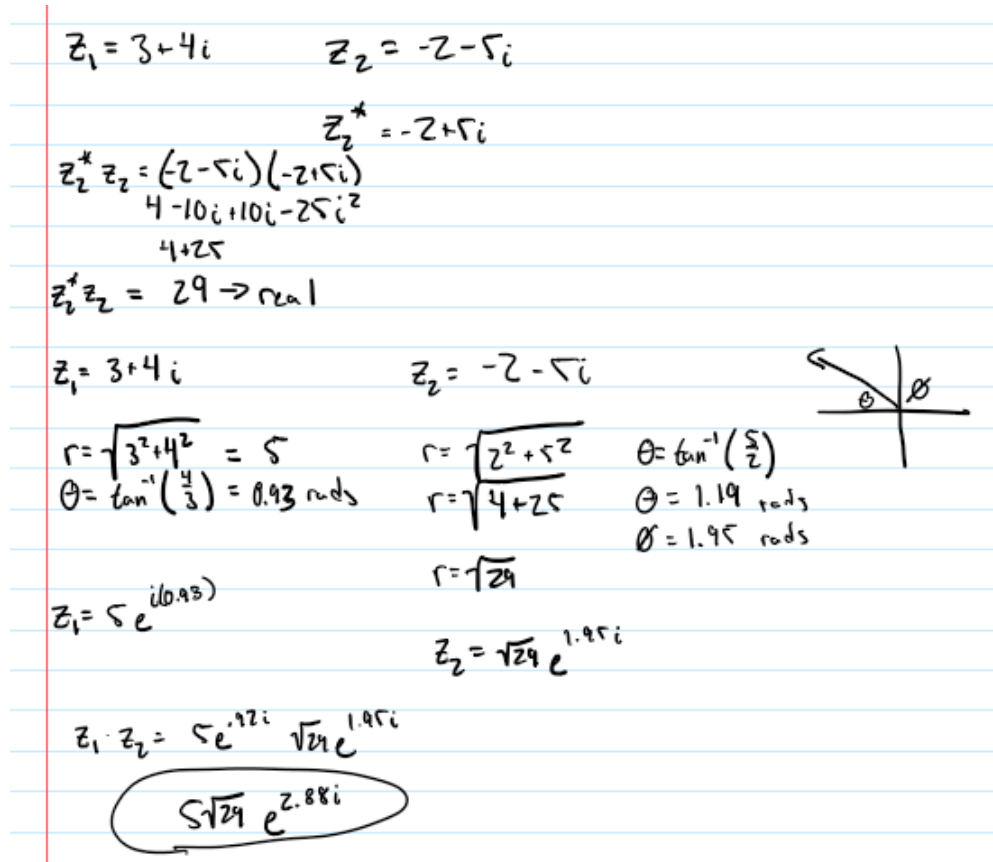 z₁ = 3+4i    z₂ = -2-5i
z₂* = -2+5i
z₂* z₂ = (-2-5i)(-2+5i)
4-10i+10i-25i²
4+25
z₂* z₂ = 29 → real
z₁ = 3+4i
r = √(3²+4²) = 5
θ = tan⁻¹(4/3) = 0.93 rads
z₁ = 5e^(i(0.93))
z₂ = -2-5i
r = √(2²+5²)
r = √(4+25)
r = √29
θ ø
θ = tan⁻¹(5/2)
θ = 1.19 rads
ø = 1.95 rads
z₂ = √29 e^(1.95i)
z₁ · z₂ = 5e^(.92i) √29 e^(1.95i)
5√29 e^(2.88i)